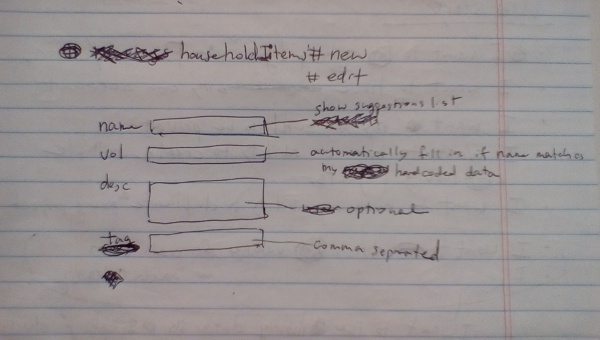 householdItems # new
# edit
show suggestions list
name
vol
automatically fill in if name matches
my hardcoded data
desc
optional
tag
comma separated